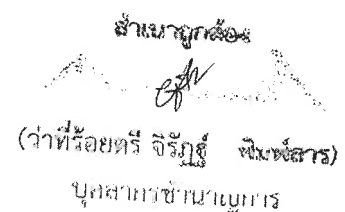 สำเนาถูกต้อง
(ว่าที่ร้อยตรี จิรัฏฐ์ พิมพ์สาร)
บุคลากรชำนาญการ